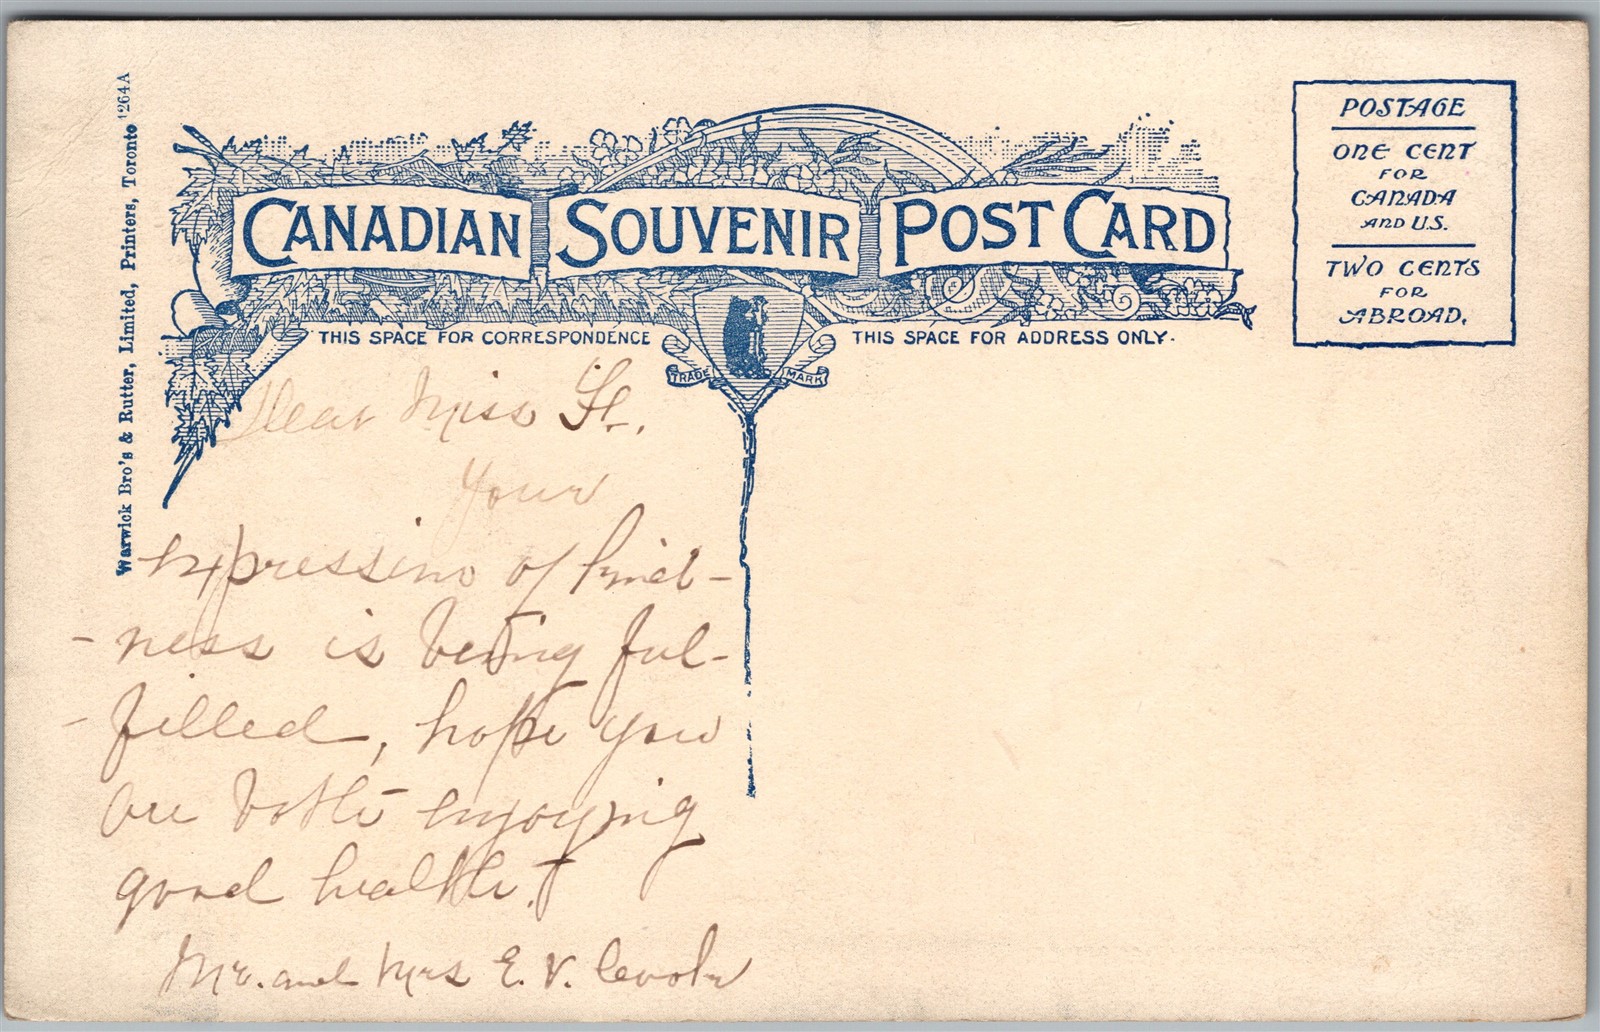 Warwick Bro's & Rutter, Limited, Printers, Toronto 1264A
CANADIAN SOUVENIR POST CARD
POSTAGE
ONE CENT
FOR
CANADA
AND U.S.
TWO CENTS
FOR
ABROAD.
THIS SPACE FOR CORRESPONDENCE
THIS SPACE FOR ADDRESS ONLY.
TRADE MARK
Dear Miss
Your
expression of kind-
-ness is being ful-
-filled, hope you
are both enjoying
good health.
Mr. and Mrs E. V.